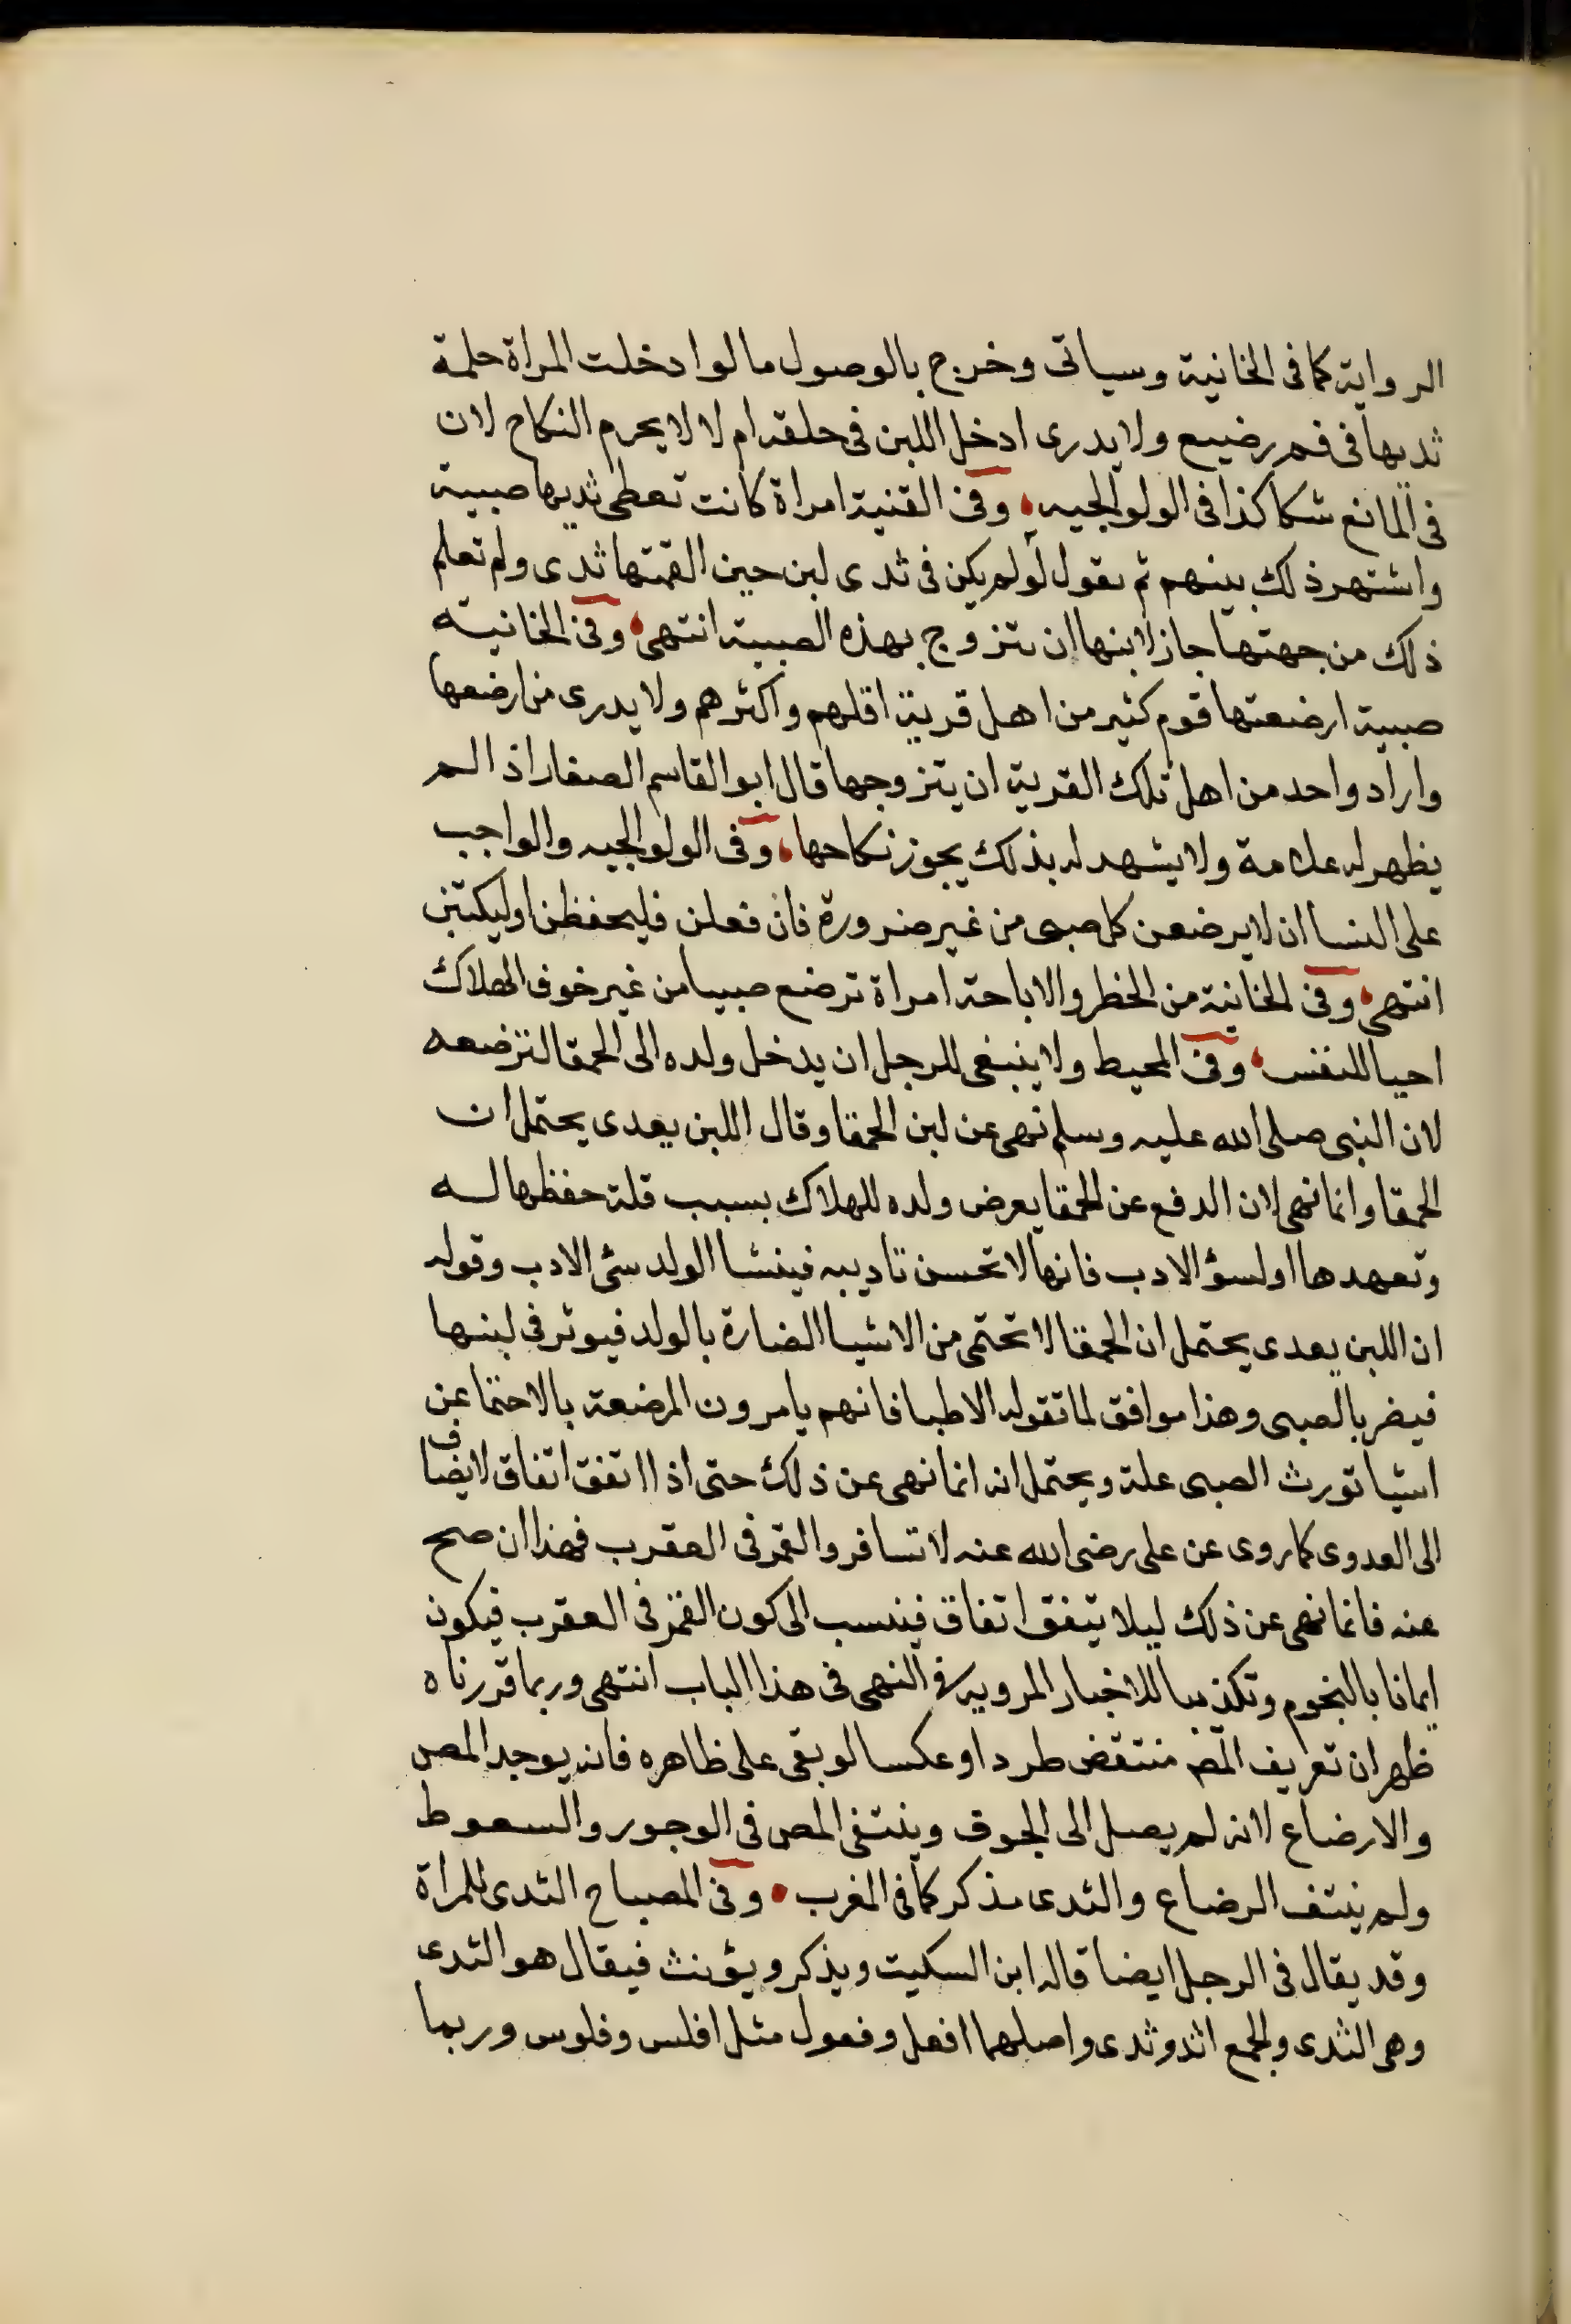 الرواية كما فى الخانية وسياتى وخرج بالوصول ما لو ادخلت المراة حلمة
ثديها فى فم رضيع ولا يدرى ادخل اللبن فى حلقه ام لا لا يحرم النكاح لان
فى المانع شكا كذا فى الولوالجيه وفى القنية امراة كانت تعطى ثديها صبية
واشتهر ذلك بينهم ثم تقول لم يكن فى ثدى لبن حين القمتها ثدى ولم تعلم
ذلك من جهتها جاز لابنها ان يتزوج بهذه الصبية انتهى وفى الخانيه
صبية ارضعتها قوم كثير من اهل قرية اقلهم واكثرهم ولا يدرى من ارضعها
واراد واحد من اهل تلك القرية ان يتزوجها قال ابو القاسم الصفار اذا لم
يظهر له علامة ولا يشهد له بذلك يجوز نكاحها وفى الولوالجيه والواجب
على النسا ان لا يرضعن كل صبى من غير ضرورة فان فعلن فليحفظن او ليكتبن
انتهى وفى الخانية من الحظر والاباحة امراة ترضع صبيا من غير خوف الهلاك
احيا للنفس وفى المحيط ولا ينبغى للرجل ان يدخل ولده الى الحمقا لترضعه
لان النبى صلى الله عليه وسلم نهى عن لبن الحمقا وقال اللبن يعدى يحتمل ان
الحمقا وانما نهى لان الدفع عن الحمقا يعرض ولده للهلاك بسبب قلة حفظها له
وتعهدها او لسؤ الادب فانها لا تحسن تاديبه فينشا الولد سئ الادب وقوله
ان اللبن يعدى يحتمل ان الحمقا لا تحتمى من الاشيا الضارة بالولد فيوثر فى لبنها
فيضر بالصبى وهذا موافق لما تقوله الاطبا فانهم يامرون المرضعة بالاحتما عن
اشيا تورث الصبى علة ويحتمل انه انما نهى عن ذلك حتى اذا اتفق اتفاق لا يضاف
الى العدوى كما روى عن على رضى الله عنه لا تسافروا القمر فى العقرب فهذا ان صح
عنه فانما نهى عن ذلك ليلا يتفق اتفاق فينسب الى كون القمر فى العقرب فيكون
ايمانا بالنجوم وتكذيبا للاخبار المرويه فى النهى فى هذا الباب انتهى وربما قررناه
ظهر ان تعريف المص منتقض طردا وعكسا لو بقى على ظاهره فانه يوجد المص
والارضاع لانه لم يصل الى الجوف وينتفى المص فى الوجور والسعوط
ولم ينتف الرضاع والثدى مذكر كما فى المغرب وفى المصباح الثدى للمراة
وقد يقال فى الرجل ايضا قاله ابن السكيت ويذكر ويؤنث فيقال هو الثدى
وهى الثدى والجمع اثد وثدى واصلهما افعل وفعول مثل افلس وفلوس وربما